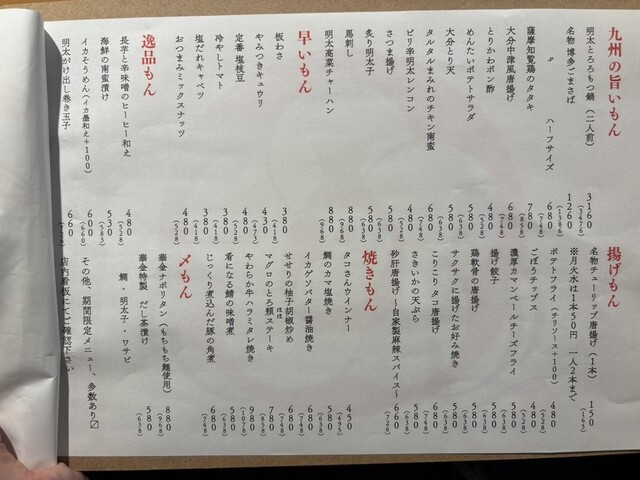 九州の旨いもん
明太とろろもつ鍋（二人前） 3160 (3476)
名物 博多ごまさば 1260 (1386)
〃 ハーフサイズ 680 (748)
薩摩知覧鶏のタタキ 780 (858)
大分中津風唐揚げ 680 (748)
とりかわポン酢 480 (528)
めんたいポテトサラダ 580 (638)
大分とり天 580 (638)
タルタルまみれのチキン南蛮 680 (748)
ピリ辛明太レンコン 480 (528)
さつま揚げ 580 (638)
炙り明太子 580 (638)
馬刺し 880 (968)
明太高菜チャーハン 880 (968)
早いもん
板わさ 380 (418)
やみつきキュウリ 430 (473)
定番 塩枝豆 480 (528)
冷やしトマト 380 (418)
塩だれキャベツ 380 (418)
おつまみミックスナッツ 480 (528)
逸品もん
長芋と辛味噌のヒーヒー和え 480 (528)
海鮮の南蛮漬け 530 (583)
イカそうめん（イカ墨和え＋100） 600 (660)
明太がけ出し巻き玉子 660
揚げもん
名物チューリップ唐揚げ（1本） 150 (165)
※月火水は1本50円 一人2本まで
ポテトフライ（チリソース＋100） 480 (528)
ごぼうチップス 480 (528)
濃厚カマンベールチーズフライ 580 (638)
揚げ餃子 530
鶏軟骨の唐揚げ 580 (638)
サクサクに揚げたお好み焼き 580 (638)
こりこりタコ唐揚げ 680 (748)
さきいかの天ぷら 580 (638)
砂肝唐揚げ〜自家製麻辣スパイス〜 660 (726)
焼きもん
タコさんウインナー 450 (495)
鯛のカマ塩焼き 580 (638)
イカゲソバター醤油焼き 680 (748)
せせりの柚子胡椒炒め 680 (748)
マグロのとろ頬ステーキ 780 (858)
やわらか牛ハラミタレ焼き 980 (1078)
肴になる鯖の味噌煮 580 (638)
じっくり煮込んだ豚の角煮 680 (748)
〆もん
華金ナポリタン（もちもち麺使用） 880 (968)
華金特製 だし茶漬け 580 (638)
鯛・明太子・ワサビ
その他、期間限定メニュー、多数あり〼
店内看板にてご確認下さい